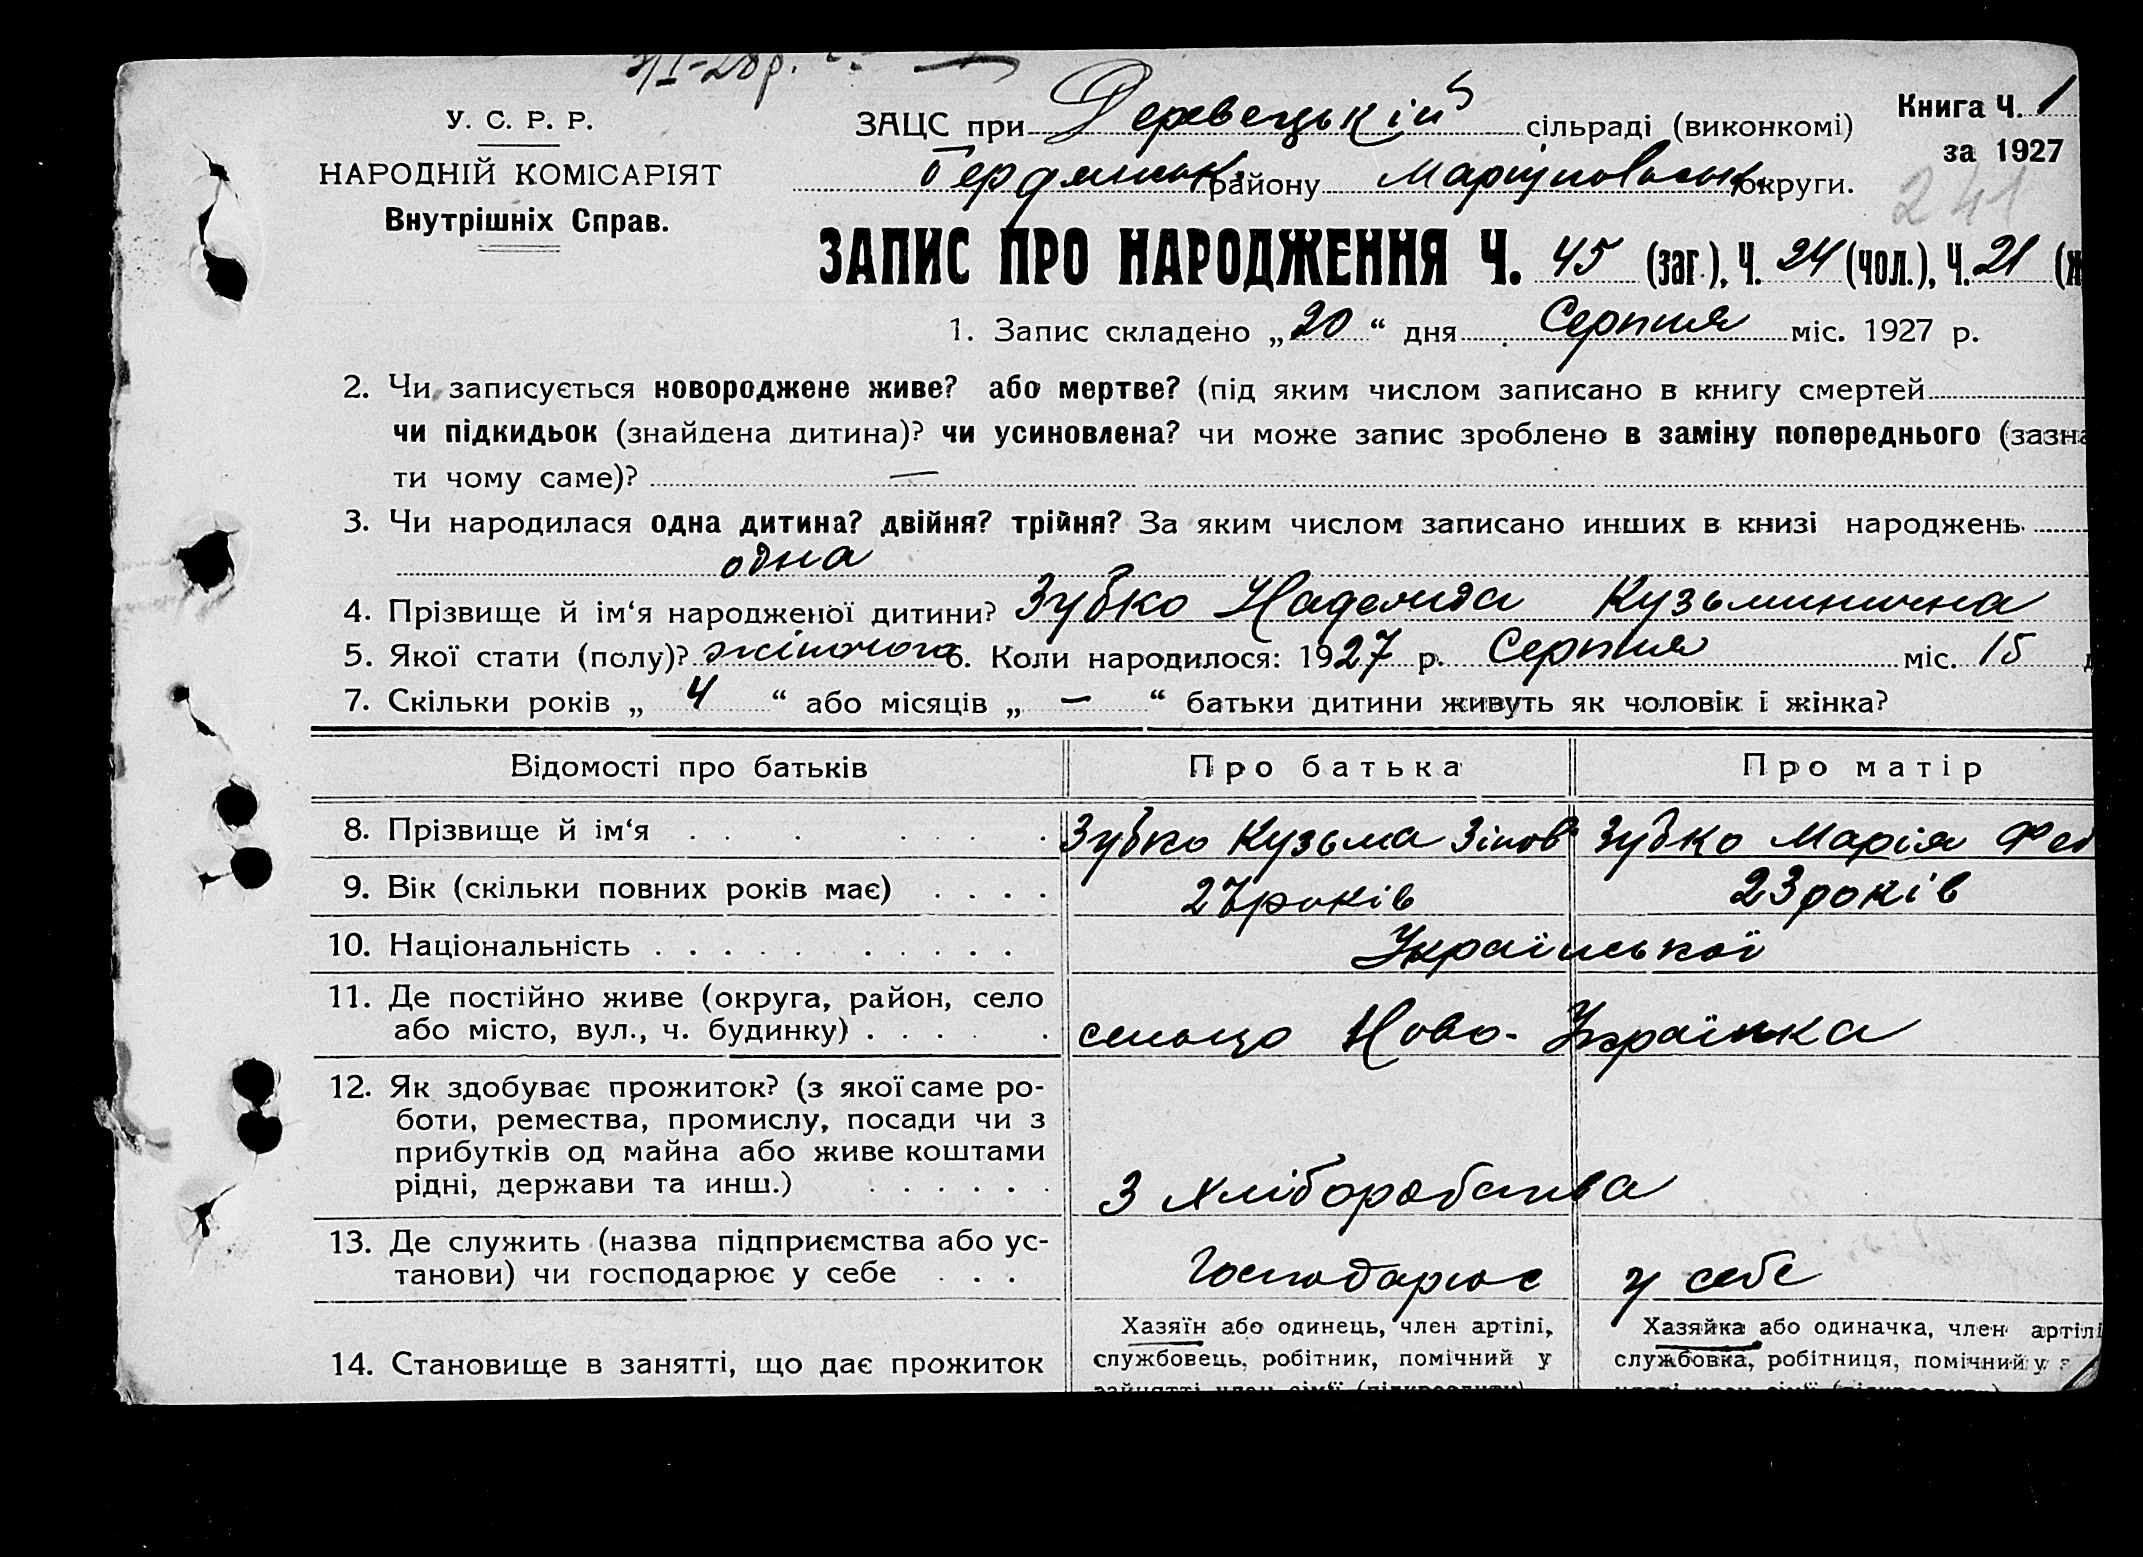 У. С. Р. Р.
НАРОДНІЙ КОМІСАРІЯТ
Внутрішніх Справ.
ЗАЦС при Деревецькій сільраді (виконкомі)
Книга Ч. 1
за 1927
Бердянськ. району Маріупольськ. округи.
241
ЗАПИС ПРО НАРОДЖЕННЯ Ч. 45 (заг.), Ч. 24 (чол.), Ч. 21 (ж
1. Запис складено „20“ дня Серпня міс. 1927 р.
2. Чи записується новороджене живе? або мертве? (під яким числом записано в книгу смертей
чи підкидьок (знайдена дитина)? чи усиновлена? чи може запис зроблено в заміну попереднього (зазна
ти чому саме)? —
3. Чи народилася одна дитина? двійня? трійня? За яким числом записано инших в книзі народжень
одна
4. Прізвище й ім‘я народженої дитини? Зубко Надежда Кузьминична
5. Якої стати (полу)? жіночого 6. Коли народилося: 1927 р. Серпня міс. 15
7. Скільки років „ 4 “ або місяців „ — “ батьки дитини живуть як чоловік і жінка?
Відомості про батьків Про батька Про матір
8. Прізвище й ім‘я . . . . . . . Зубко Кузьма Зінов Зубко Марія Фед
9. Вік (скільки повних років має) . . . . 27 років 23 років
10. Національність . . . . . . . . . . Української
11. Де постійно живе (округа, район, село
або місто, вул., ч. будинку) . . . . . сельцо Ново-Українка
12. Як здобуває прожиток? (з якої саме ро-
боти, ремества, промислу, посади чи з
прибутків од майна або живе коштами
рідні, держави та инш.) . . . . . . З хліборобства
13. Де служить (назва підприємства або ус-
танови) чи господарює у себе . . . Господарює у себе
14. Становище в занятті, що дає прожиток
Хазяїн або одинець, член артілі,
службовець, робітник, помічний у
зайнятті член сім‘ї (підкреслити)
Хазяйка або одиначка, член артілі
службовка, робітниця, помічний у з